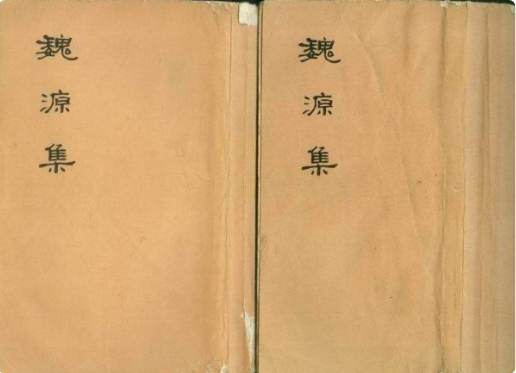 魏源集
魏源集